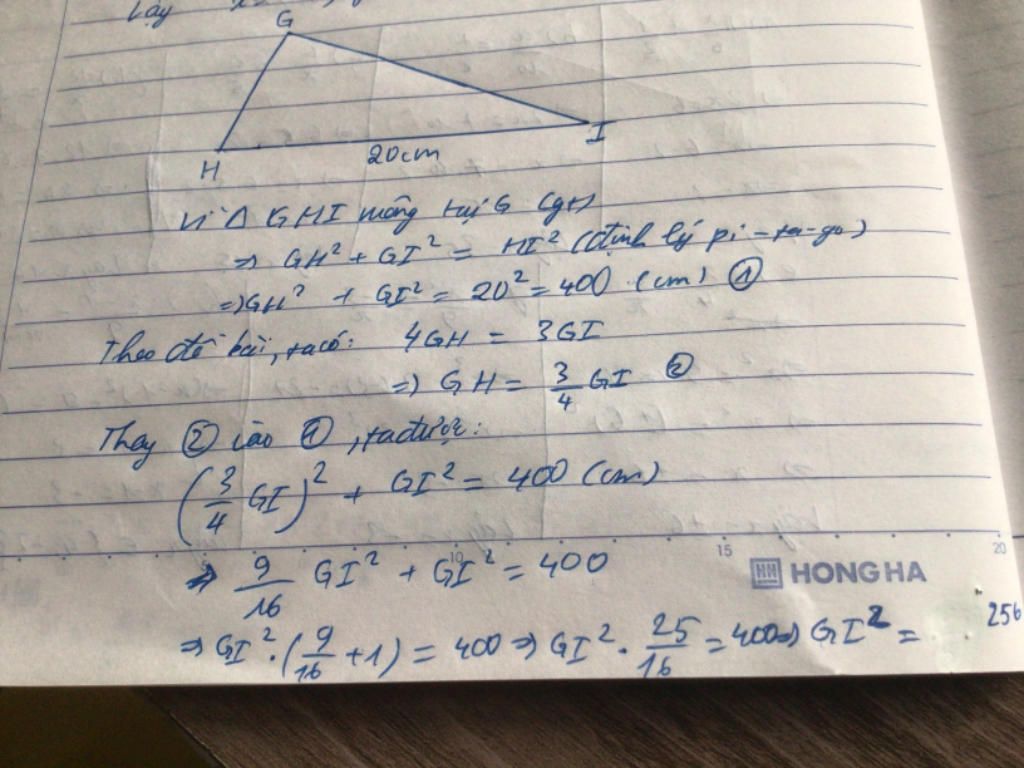 Lấy
G
H
20cm
I
Vì Δ GHI vuông tại G (gt)
⇒ GH² + GI² = HI² (định lý pi-ta-go)
⇒ GH² + GI² = 20² = 400 (cm) ①
Theo đề bài, ta có: 4GH = 3GI
⇒ GH = 3/4 GI ②
Thay ② vào ①, ta được:
(3/4 GI)² + GI² = 400 (cm)
5 10 15 20
⇒ 9/16 GI² + GI² = 400
HH HONG HA
⇒ GI² . (9/16 + 1) = 400 ⇒ GI² . 25/16 = 400 ⇒ GI² = 256